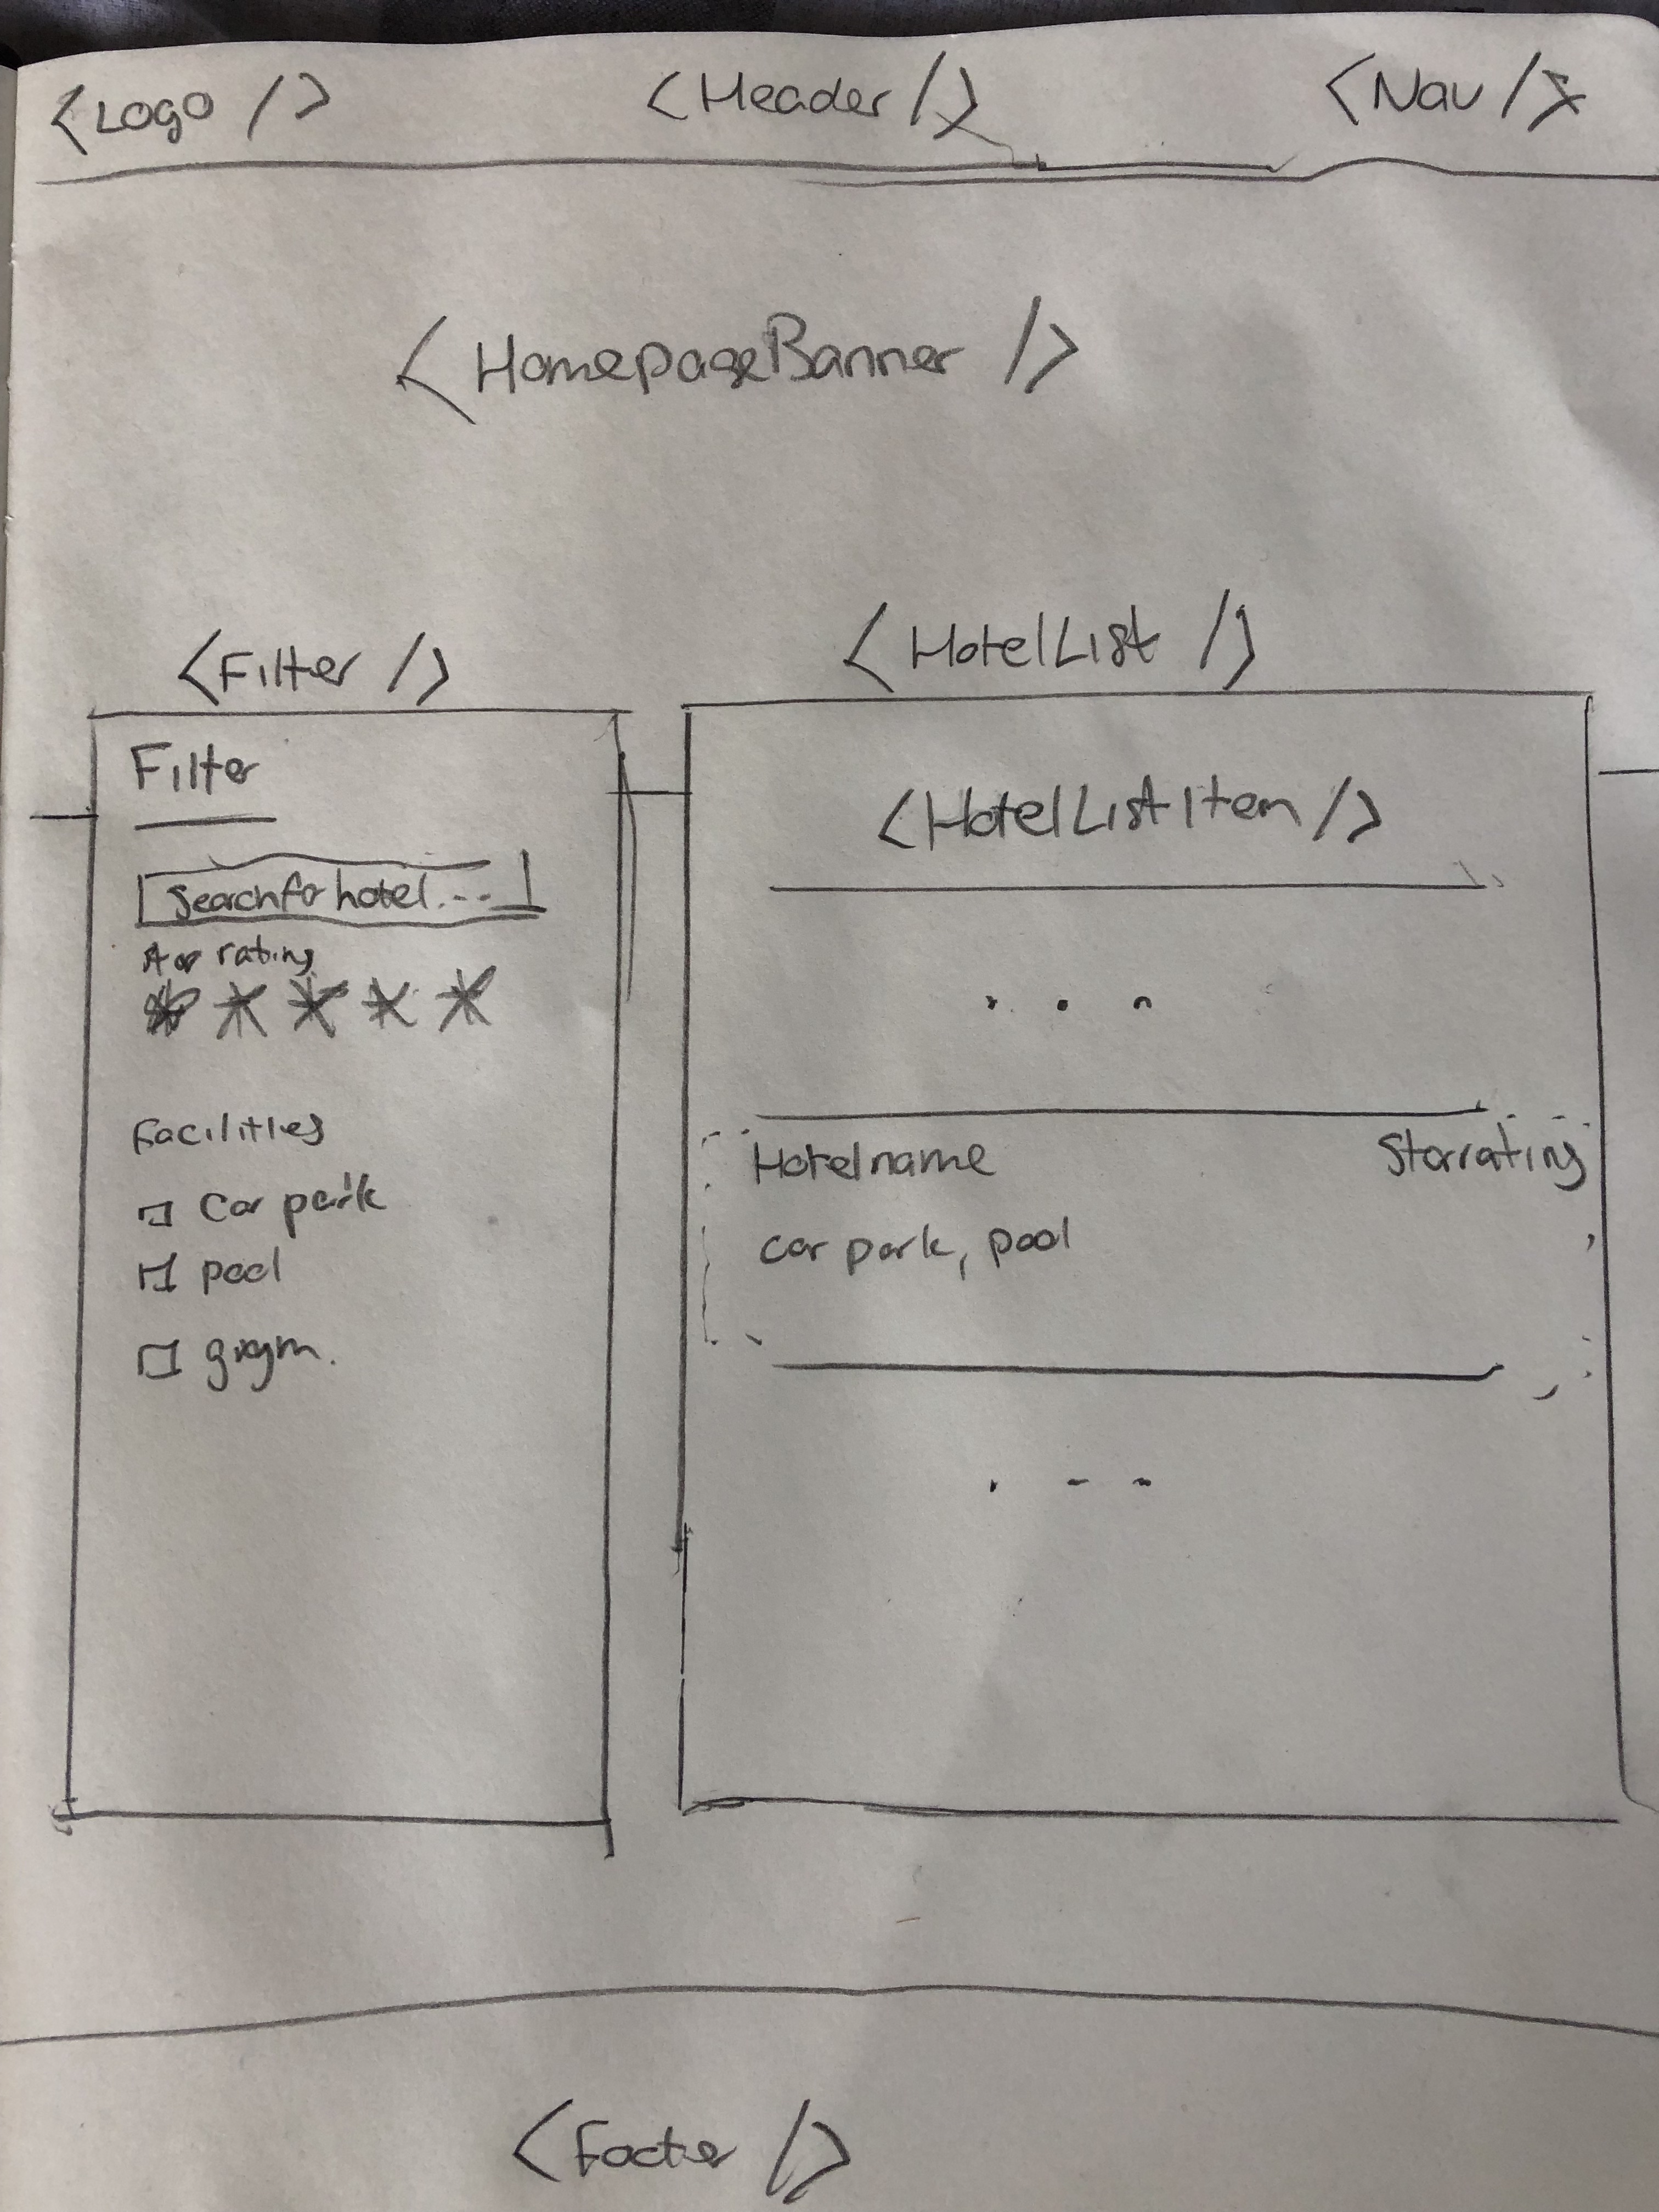 <Logo /> <Header /> <Nav />
<HomepageBanner />
<Filter /> <HotelList />
Filter
Search for hotel...
rating
Facilities
Car park
pool
gym.
<HotelListItem />
...
Hotel name Star rating
car park, pool
...
<Footer />